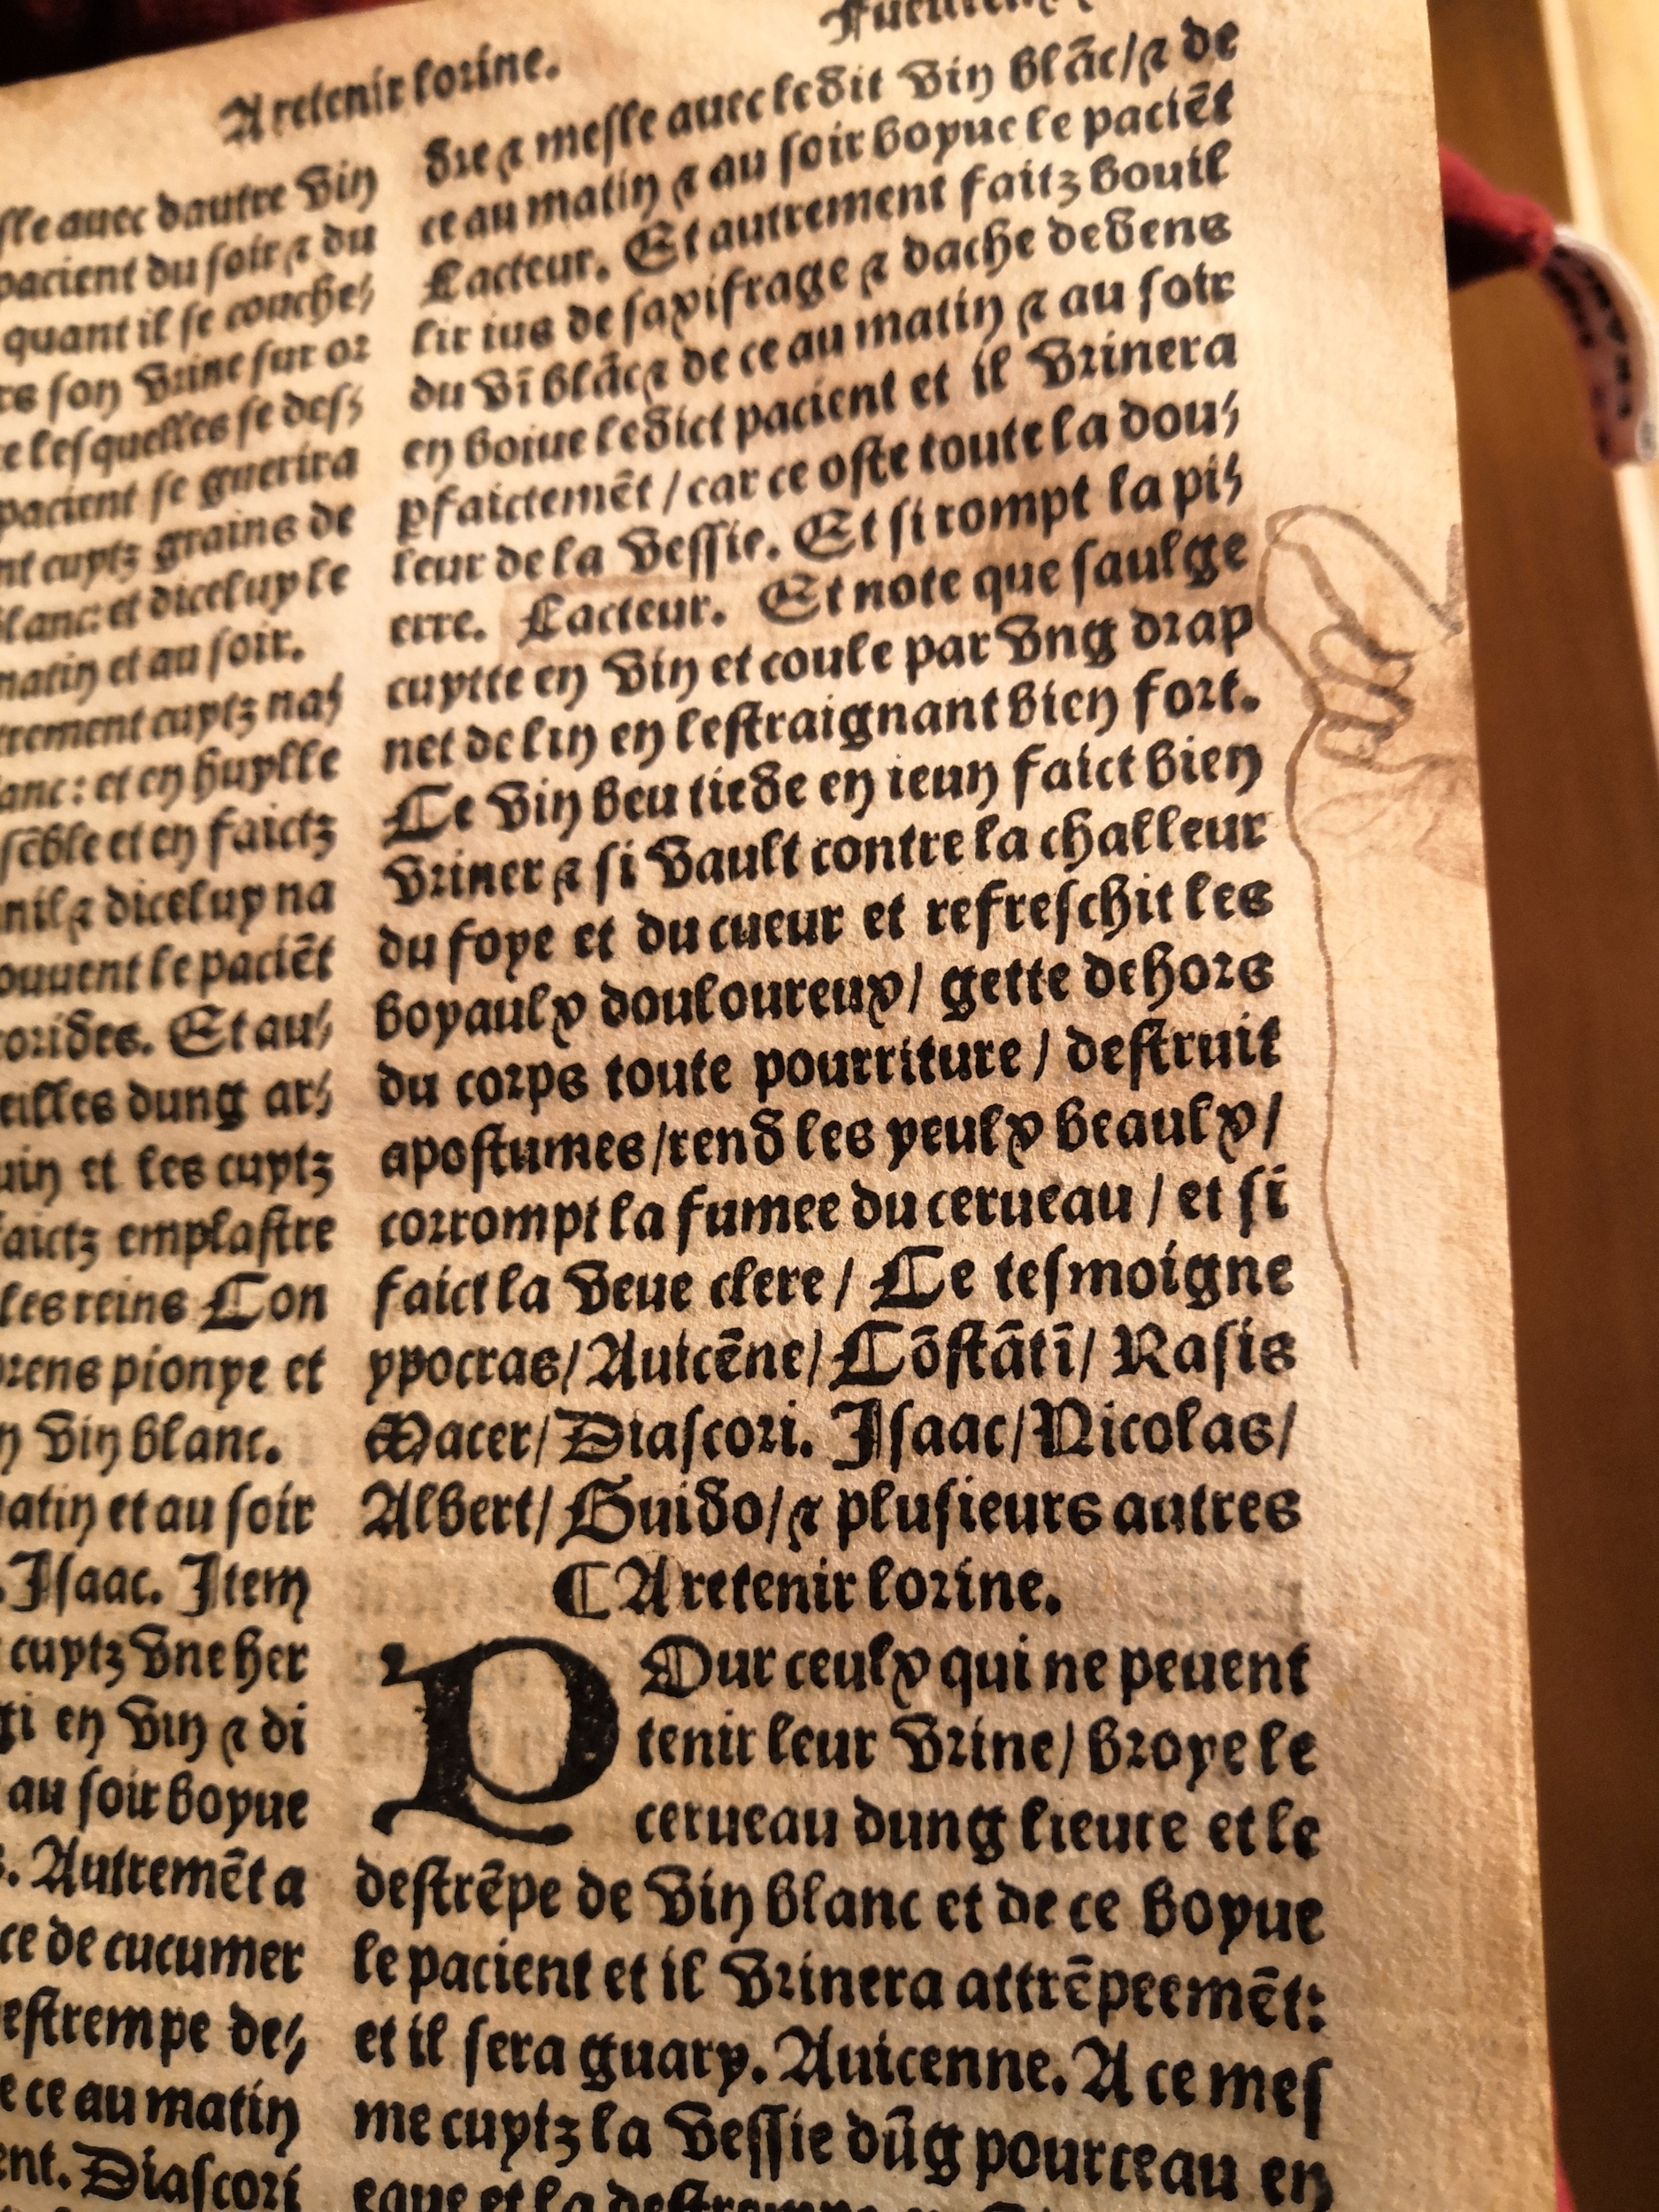 A retenir lorine.
ſle auec dautre vin
pacient du ſoir ⁊ du
quant il ſe couche/
rs ſon vrine ſur or
e leſquelles ſe deſ/
pacient ſe guerira
nt cuytz grains de
blanc: et diceluy le
matin et au ſoir.
trement cuytz na/
anc: et en huylle
ſēble et en faictz
nil ⁊ diceluy na
ouuent le paciēt
corides. Et au/
eilles dung ar/
uin et les cuytz
faictz emplaſtre
les reins Con
orens pionye et
n vin blanc.
matin et au ſoir
. Iſaac. Item
cuytz vne her
ti en vin ⁊ di
au ſoir boyue
. Autremēt a
ce de cucumer
eſtrempe de/
e ce au matin
ent. Diaſcori
dre ⁊ meſle auec ledit vin blāc/⁊ de
ce au matin ⁊ au ſoir boyue le paciēt
Lacteur. Et autrement faitz bouil
lir ius de ſaxifrage ⁊ dache dedens
du vī blāc ⁊ de ce au matin ⁊ au ſoir
en boiue ledict pacient et il vrinera
ꝑfaictemēt / car ce oſte toute la dou/
leur de la veſſie. Et ſi rompt la pi/
erre. Lacteur. Et note que ſaulge
cuytte en vin et coule par vng drap
net de lin en leſtraignant bien fort.
Ce vin beu tiede en ieun faict bien
vriner ⁊ ſi vault contre la challeur
du foye et du cueur et refreſchit les
boyaulx douloureux/ gette dehors
du corps toute pourriture / deſtruit
apoſtumes/rend les yeulx beaulx/
corrompt la fumee du cerueau / et ſi
faict la veue clere / Ce teſmoigne
ypocras/Auicēne/Cōſtātī/ Raſis
Macer/Diaſcori. Iſaac/Nicolas/
Albert/Guido/⁊ pluſieurs autres
⸿A retenir lorine.
POur ceulx qui ne peuent
tenir leur vrine/ broye le
cerueau dung lieure et le
deſtrēpe de vin blanc et de ce boyue
le pacient et il vrinera attrēpeemēt:
et il ſera guary. Auicenne. A ce meſ
me cuytz la veſſie dūg pourceau en
eaue et la deſtrempe